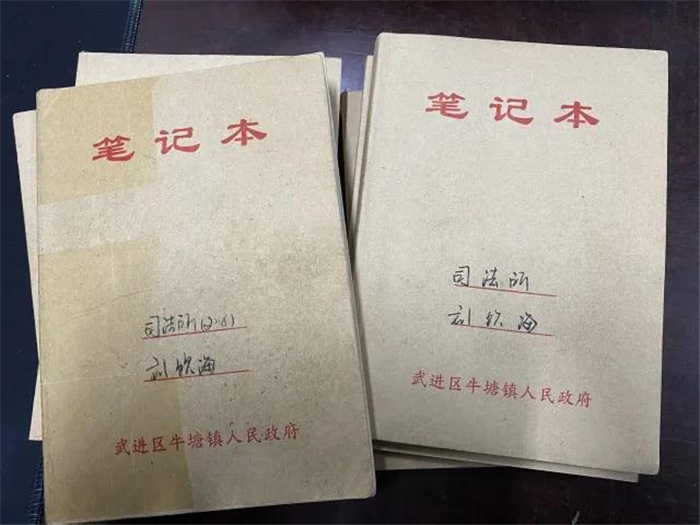 笔记本
司法所(2.8)
刘钦海
武进区牛塘镇人民政府
笔记本
司法所
刘钦海
武进区牛塘镇人民政府